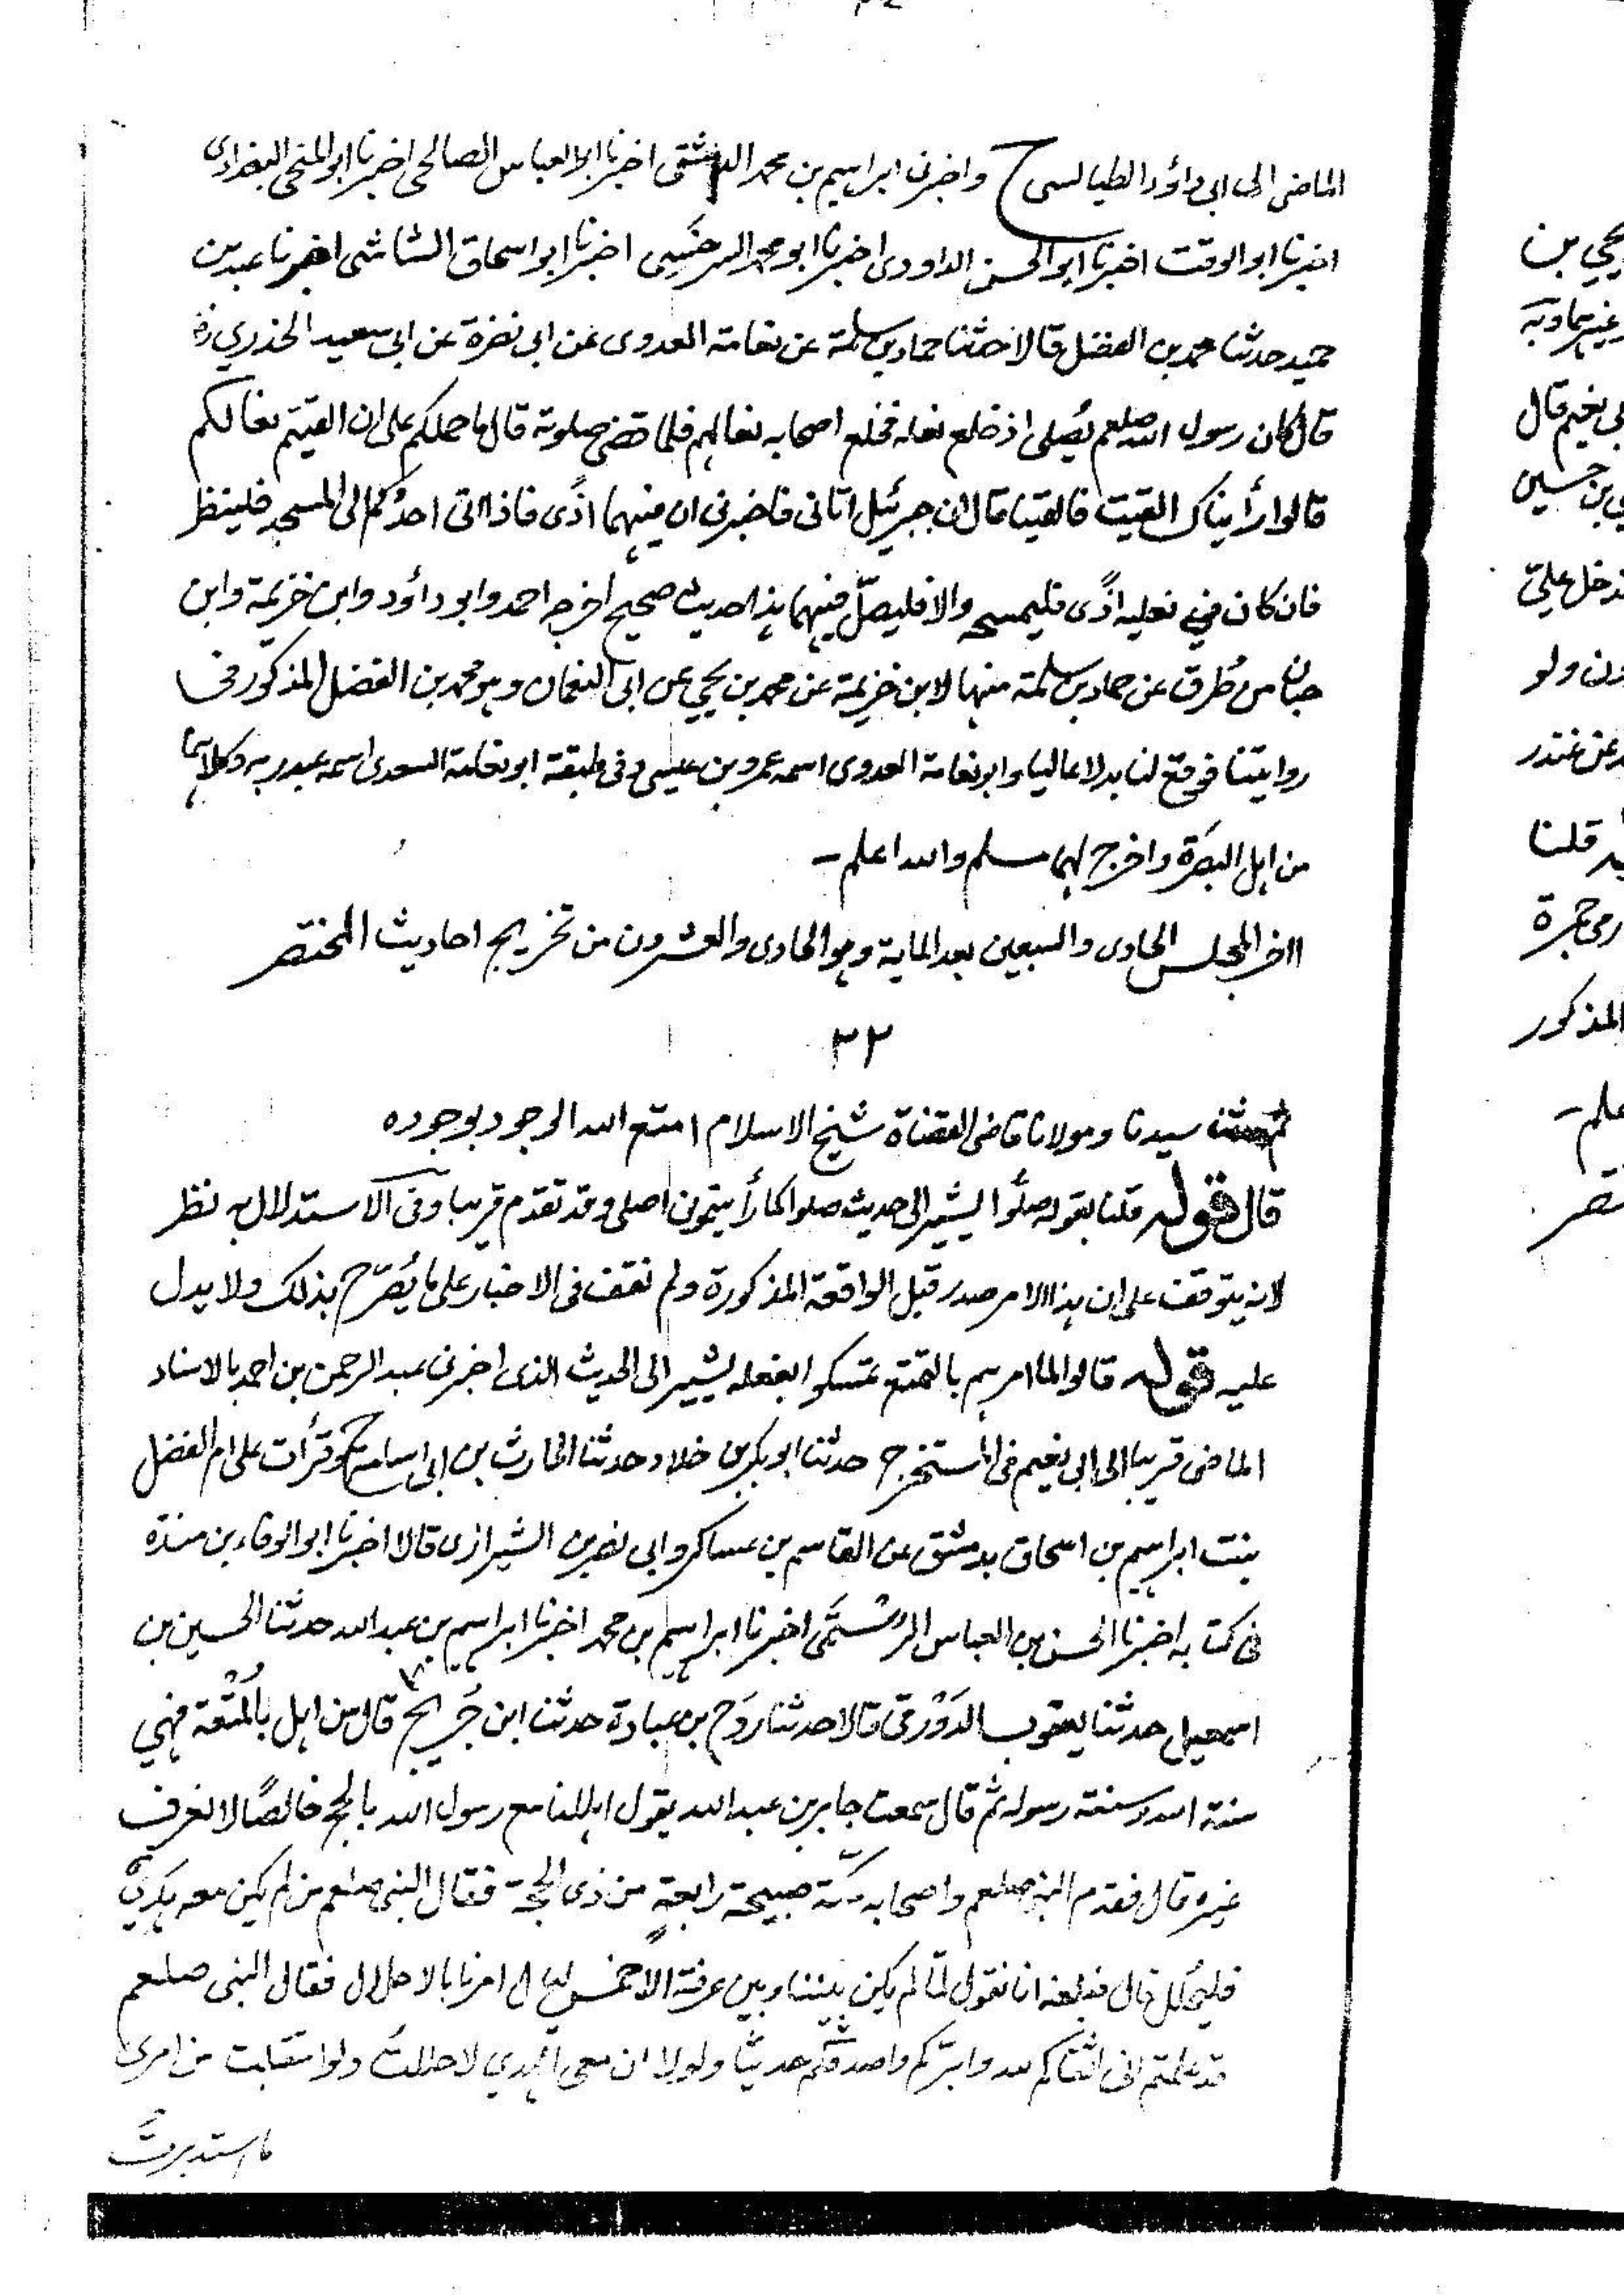 الماضى الى ابى داؤد الطيالسى ح واخبرنى ابراہيم بن محمد الدمشقى اخبرنا ابو العباس الصالحى اخبرنا ابو المنجى البغدادى
اخبرنا ابو الوقت اخبرنا ابو الحسن الداودى اخبرنا ابو محمد السرخسى اخبرنا ابو اسحاق الشاشى اخبرنا عبد بن
حميد حدثنا محمد بن الفضل قالا حدثنا حماد بن سلمة عن نعامة العدوى عن ابى نضرة عن ابى سعيد الخدري رض
قال كان رسول الله صلعم يُصلى اذ خلع نعله فخلع اصحابه نعالہم فلما قضى صلوته قال ما حملكم على ان القيتم نعالكم
قالوا رأيناك القيت فالقينا قال ان جبرئيل اتانى فاخبرنى ان فيہما اذًى فاذا اتى احدكم الى المسجد فلينظر
فان كان في نعليه اذًى فليمسحه والا فليصلّ فيہما ہذا حديث صحيح اخرجه احمد وابو داؤد وابن خزيمة وابن
حبان من طُرق عن حماد بن سلمة منہا لابن خزيمة عن محمد بن يحيي عن ابى النعمان وہو محمد بن الفضل المذكور فى
روايتنا فوقع لنا بدلا عاليا وابو نعامة العدوى اسمه عمرو بن عيسى وفى طبقته ابو نعامة السعدى اسمه عبد ربه وكلاہما
من اہل البصرة واخرج لہما مسلم والله اعلم -
اخر المجلس الحادى والسبعين بعد الماية وہو الحادى والعشرون من تخريج احاديث المختصر
٢٢
ثم حدثنا سيدنا ومولانا قاضى القضاة شيخ الاسلام امتع الله الوجود بوجوده
قال قوله قلنا بقوله صلُّوا يشير الى حديث صلوا كما رأيتمونى اصلى وقد تقدم قريبا وفى الاستدلال به نظر
لانه يتوقف على ان ہذا الامر صدر قبل الواقعة المذكورة ولم نقف فى الاخبار على ما يُصَرّح بذلك ولا يدل
عليه قوله قالوا لما امرہم بالتمتع تمسكوا بفعله يشير الى الحديث الذى اخبرنى عبد الرحمن بن احمد بالاسناد
الماضى قريبا الى ابى نعيم فى المستخرج حدثنا ابو بكر بن خلاد حدثنا الحارث بن ابى اسامة ح وقرأت على ام الفضل
بنت ابراہيم بن اسحاق بدمشق عن القاسم بن عساكر وابى نصر بن الشيرازى قالا اخبرنا ابو الوفاء بن مندة
فى كتابه اخبرنا الحسن بن العباس الرُسْتَمى اخبرنا ابراہيم بن محمد اخبرنا ابراہيم بن عبد الله حدثنا الحسين بن
اسمعيل حدثنا يعقوب الدَوْرقى قالا حدثنا رَوح بن عبادة حدثنا ابن جُريج قال من اہل بالمُتْعة فہي
سنة الله وسنة رسوله ثم قال سمعت جابر بن عبد الله يقول اہللنا مع رسول الله بالحج خالصًا لا نعرف
غيره قال فقدم النبى صلعم واصحابه مكّة صبيحة رابعةٍ من ذى الحجة فقال النبى صلعم من لم يكن معه ہَديٌ
فليحلل قال فبلغه انا نقول لمّا لم يكن بيننا وبين عرفة الا خمس ليال امرنا بالاحلال فقال النبى صلعم
قد علمتم انى اتقاكم لله وابرّكم واصدقكم حديثا ولولا ان معى الہدي لاحللتُ ولو استقبلت من امرى
ما استدبرتُ